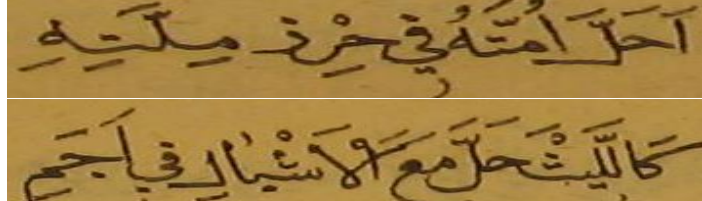 اَحَلَّ اُمَّتَهُ فِي حِرْزِ مِلَّتِهِ
كَاللَّيْثِ حَلَّ مَعَ الْاَشْبَالِ فِي اَجَمِ